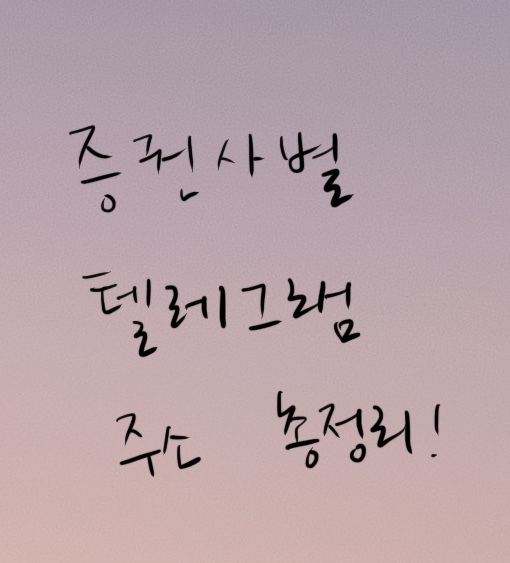 증권사별
텔레그램
주소 총정리!